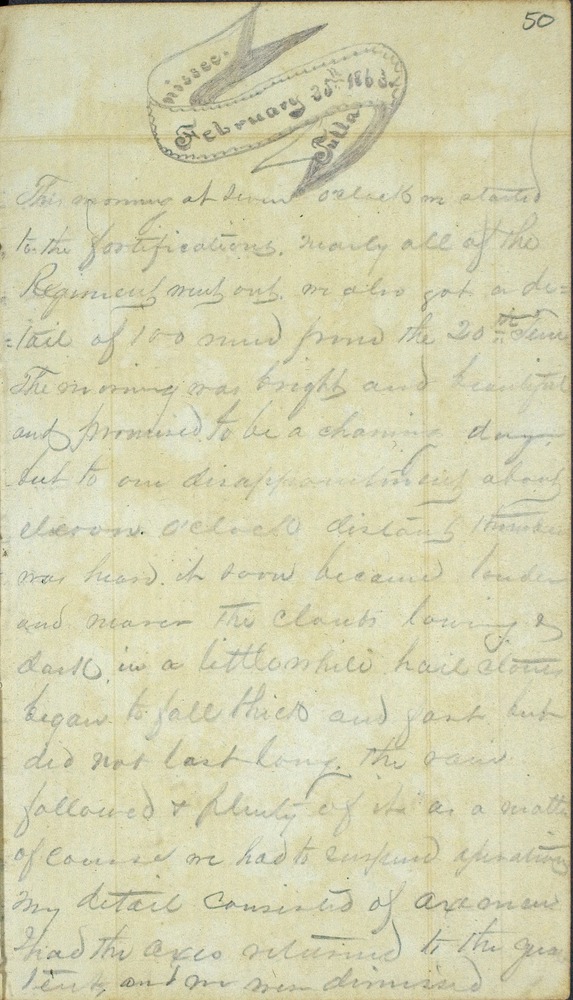 50
February 25th 1863.
Tulla
This morning at seven o'clock we started
to the fortifications. nearly all of the
Regiment went out. we also got a de-
=tail of 100 men from the 20th Tenn
The morning was bright and beautiful
and promised to be a charming day.
but to our disappointment about
eleven. o'clock distant thunder
was heard. it soon became louder
and nearer the clouds lowing &
dark, in a little while hail stones
began to fall thick and fast but
did not last long. the rain
followed & plenty of it. as a matter
of course we had to suspend operations
My detail consisted of axe men
had the axes returned to the
tent, and we were dismissed